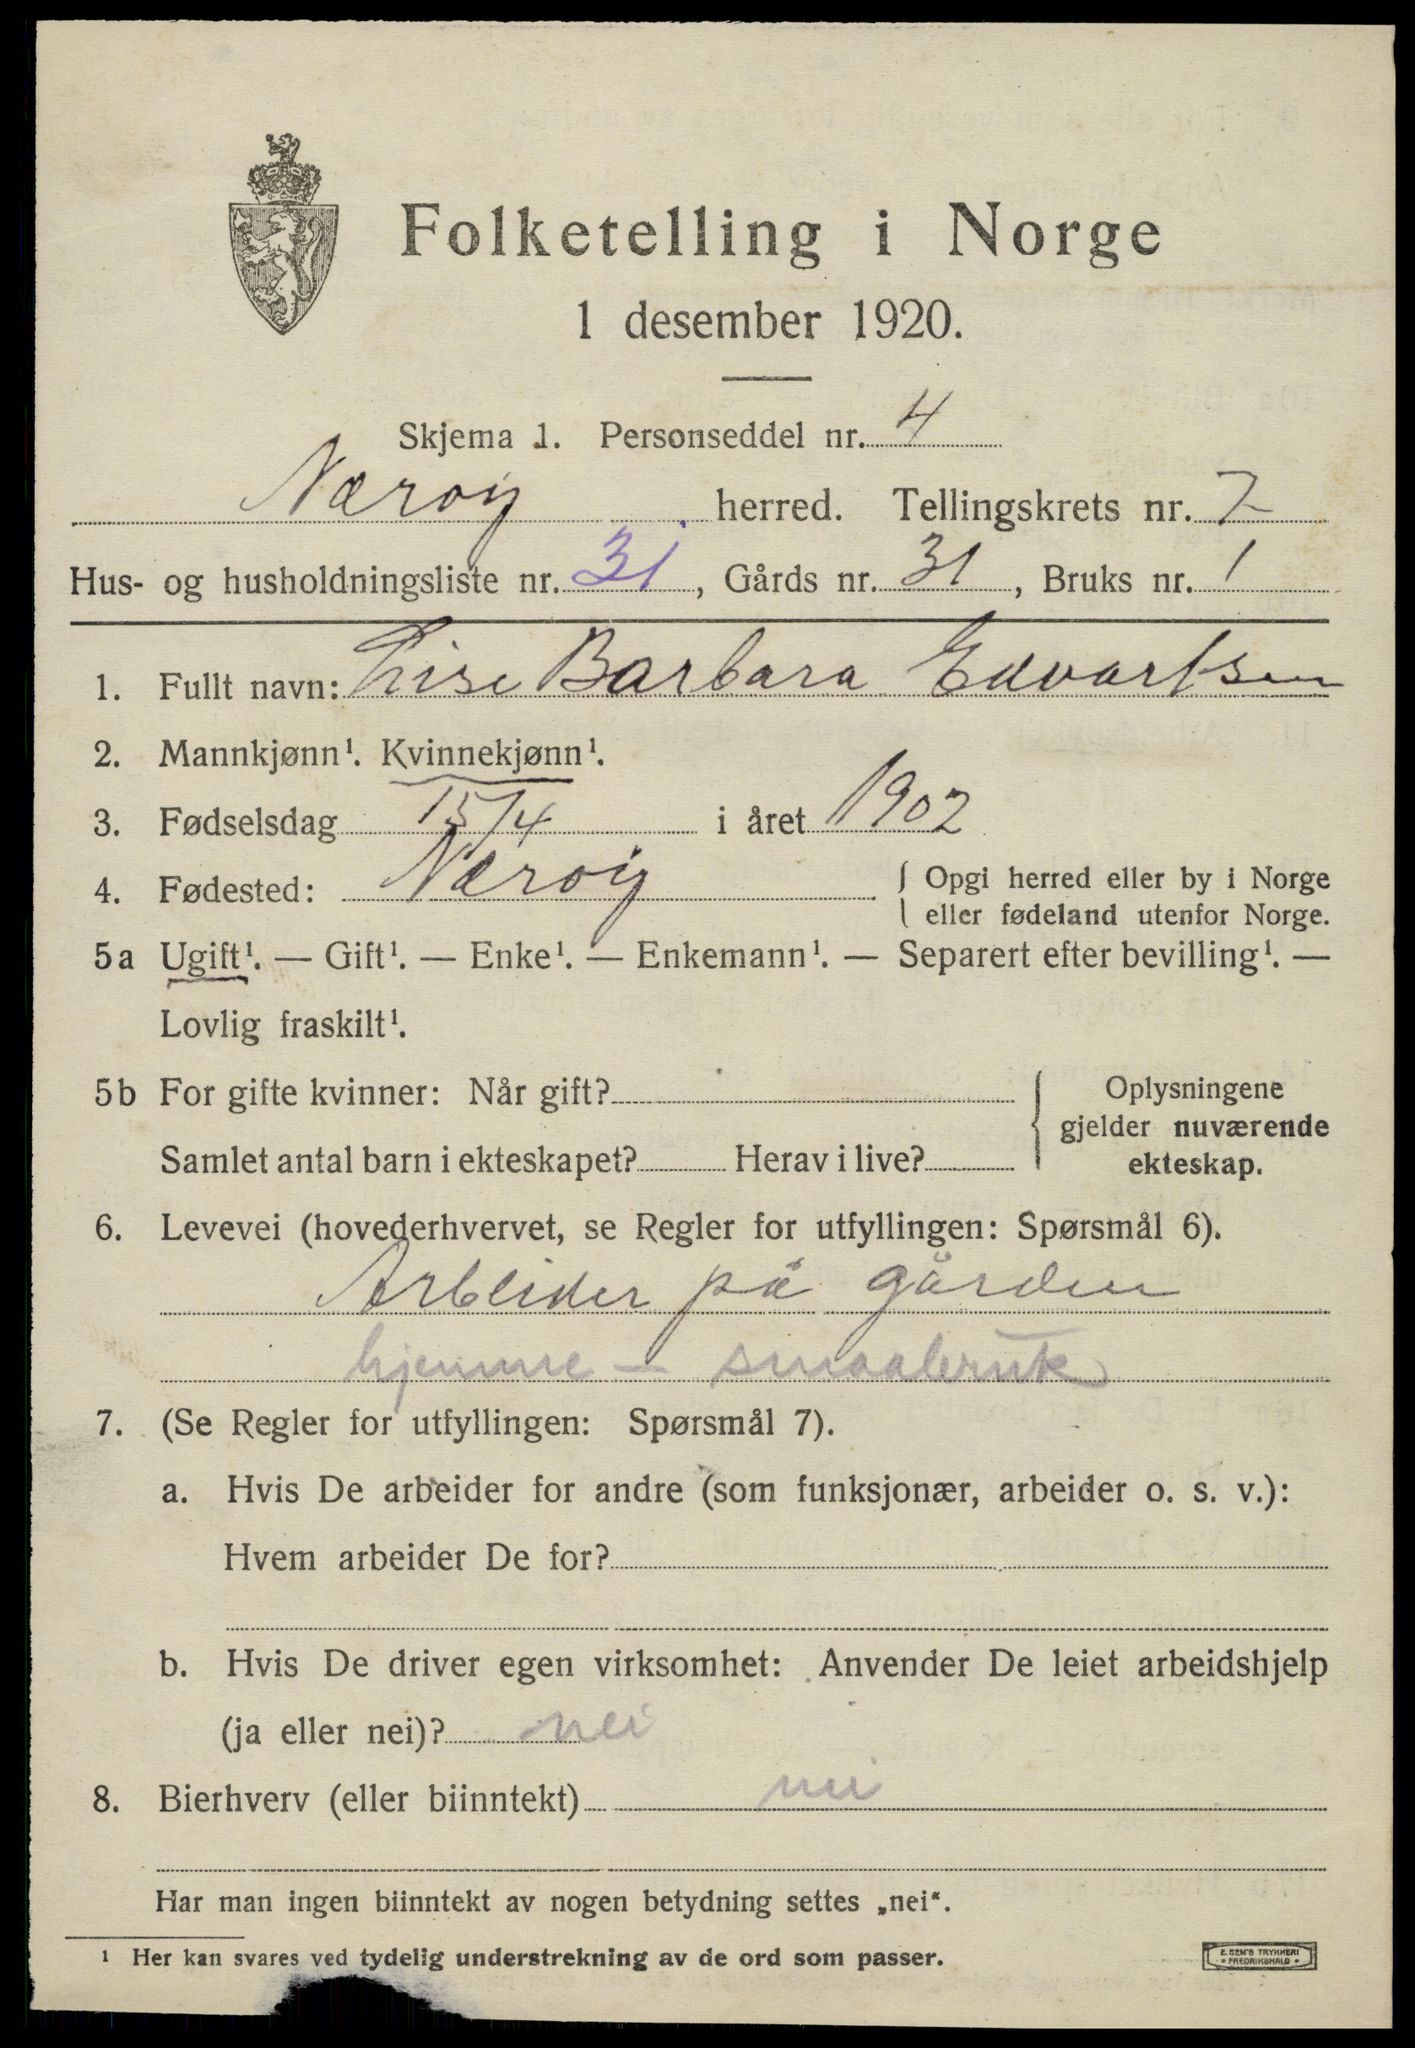 Folketelling i Norge
1 desember 1920.
Skjema 1. Personseddel nr. 4
Nærøy herred. Tellingskrets nr. 7
Hus- og husholdningsliste nr. 31, Gårds nr. 31, Bruks nr. 1
1. Fullt navn: Lise Barbara Edvartsen
2. Mannkjønn¹. Kvinnekjønn¹.
3. Fødselsdag 15/4 i året 1902
4. Fødested: Nærøy { Opgi herred eller by i Norge
eller fødeland utenfor Norge.
5a Ugift¹. — Gift¹. — Enke¹. — Enkemann¹. — Separert efter bevilling¹. —
Lovlig fraskilt¹.
5b For gifte kvinner: Når gift? { Oplysningene
gjelder nuværende
Samlet antal barn i ekteskapet? Herav i live? ekteskap.
6. Levevei (hovederhvervet, se Regler for utfyllingen: Spørsmål 6).
Arbeider på gården
hjemme – smaabruk
7. (Se Regler for utfyllingen: Spørsmål 7).
a. Hvis De arbeider for andre (som funksjonær, arbeider o. s. v.):
Hvem arbeider De for?
b. Hvis De driver egen virksomhet: Anvender De leiet arbeidshjelp
(ja eller nei)? nei
8. Bierhverv (eller biinntekt) nei
Har man ingen biinntekt av nogen betydning settes „nei“.
¹ Her kan svares ved tydelig understrekning av de ord som passer.
E. SEM'S TRYKKERI
• FREDRIKSHALD •